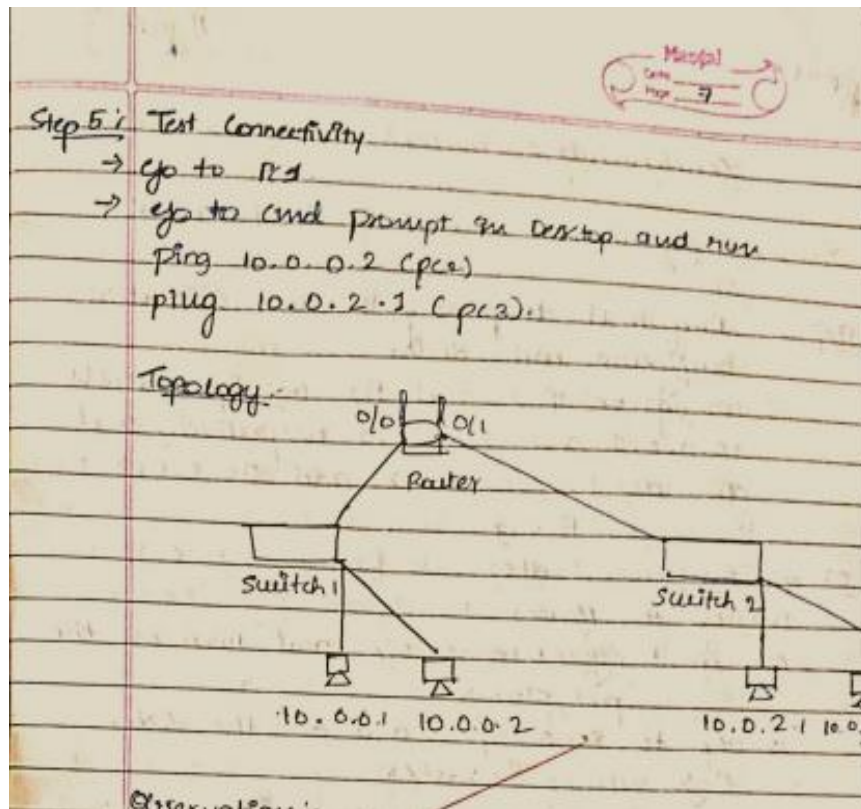 Page 7
Step 5: Test Connectivity
→ Go to PC1
→ Go to Cmd prompt in Desktop and run
Ping 10.0.0.2 (PC2)
ping 10.0.2.1 (PC3).
Topology:-
0/0 0/1
Router
Switch 1 Switch 2
10.0.0.1 10.0.0.2 10.0.2.1 10.0.
Observation: